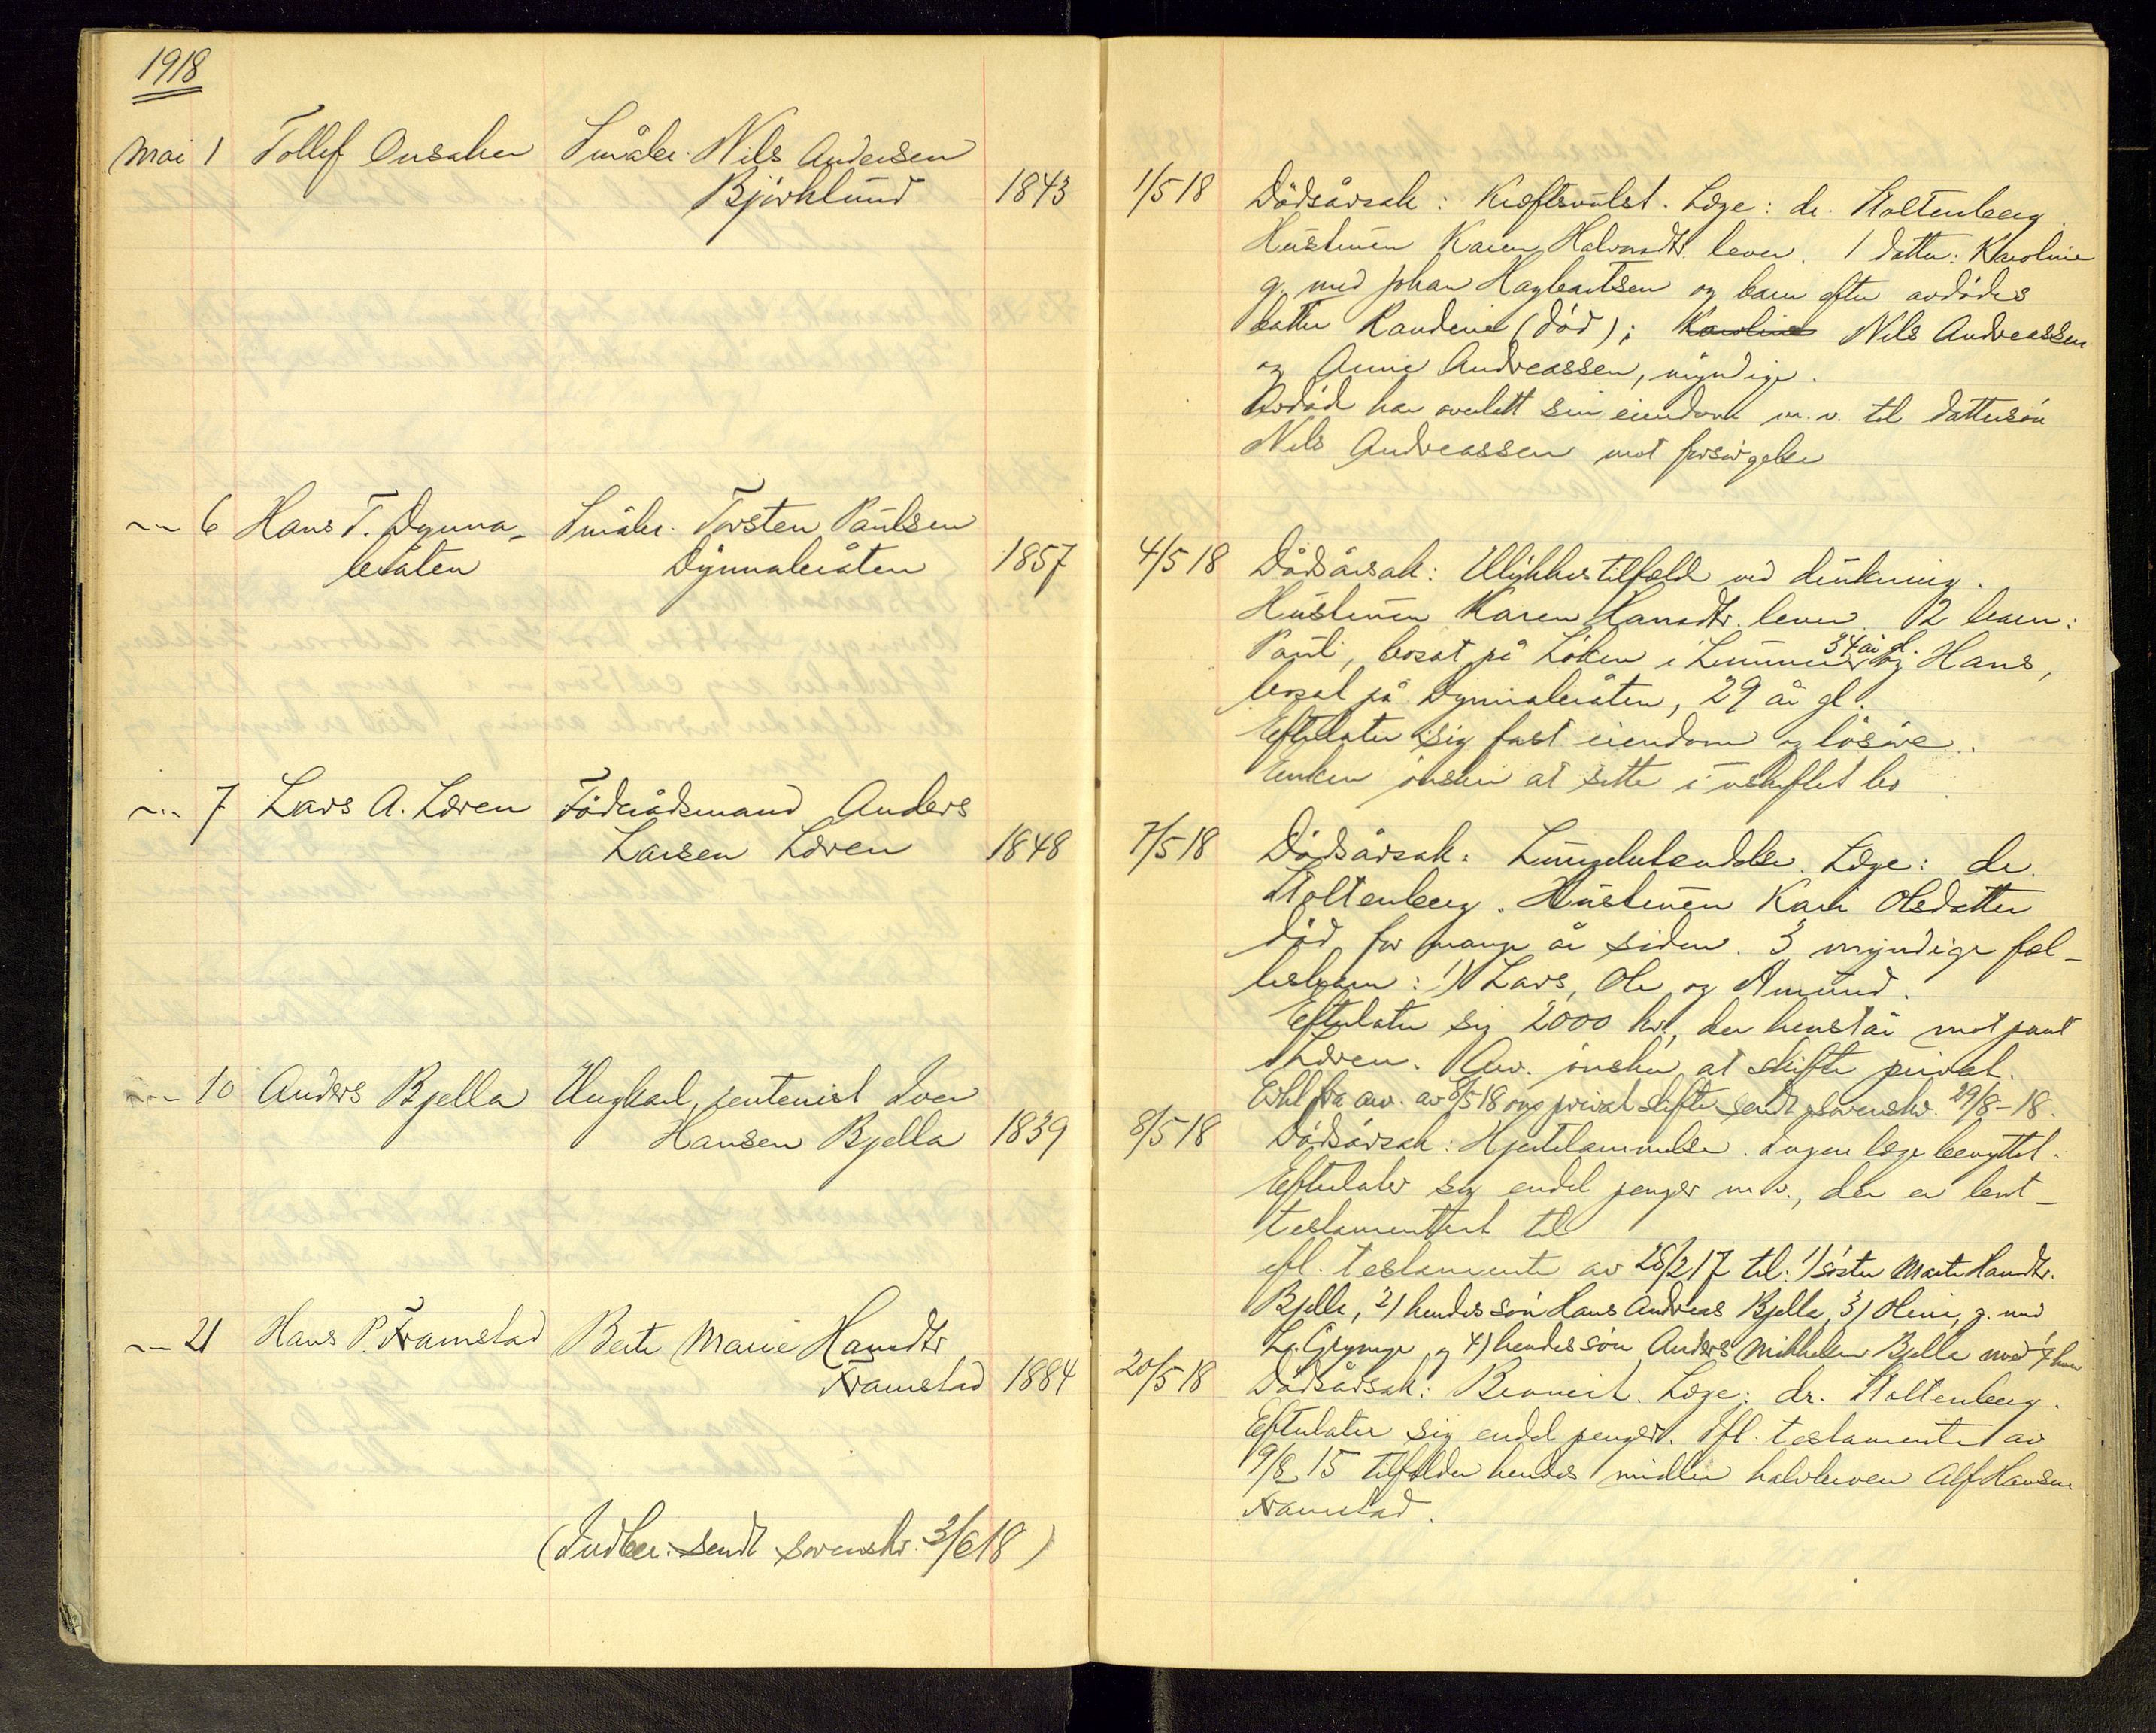 1918
Mai 1 Tollef Onsaker Småbr. Nils Andersen
Björklund 1843
~ 6 Hans T. Dynna-
bråten
Småbr. Torsten Paulsen
Dynnabråten 1857
~ 7 Lars A. Løren Föderådsmand Anders
Larsen Løren 1848
~ 10 Anders Bjella Ungkarl, rentenist Iver
Hansen Bjella 1839
~ 21 Hans P. Framstad Berte Marie Hansdtr
Framstad 1884
(Indber. sendt sorenskr. 3/6 18)
1/5 18 Dödsårsak: Kræftsvulst. Læge: dr. Stoltenberg.
Hustruen Karen Halvorsdtr. lever. 1 datter: Karoline
g. med Johan Hagbartsen og barn efter avdödes
datter Randine (död); Karoline Nils Andreassen
og Anne Andreassen, myndige.
Avdöde har overlatt sin eiendom m.v. til dattersön
Nils Andreassen mot forsörgelse
4/5 18 Dödsårsak: Ulykkestilfælde ved drukning.
Hustruen Karen Hansdtr. lever. 2 barn:
Paul, bosat på Löken i Lunner 34 år og Hans,
bosat på Dynnabråten, 29 år gl.
Efterlater sig fast eiendom og lösöre.
Enken önsker at sitte i uskiftet bo
7/5 18 Dödsårsak: Lungebetændelse. Læge: dr.
Stoltenberg. Hustruen Kari Olsdatter
död for mange år siden. 3 myndige fæl-
lesbarn: 1) Lars, Ole og Amund.
Efterlater sig 2000 kr., der henstår mot pant
i Løren. Arv. önsker at skifte privat.
Erkl. fra arv. av 8/5 18 om privat skifte sendt sorenskr. 29/8-18.
8/5 18 Dödsårsak: Hjertelammelse. Ingen læge benyttet.
Efterlater sig endel penger m.v., der er bort-
testamentert til
efl. testamente av 28/2 17 til: 1) søster Marte Hansdtr.
Bjella, 2) hendes sön Hans Andreas Bjella, 3) Oline, g. med
L. Grymyr og 4) hendes sön Anders Mikkelsen Bjella med 1/4 hver
20/5 18 Dödsårsak: Læge: dr. Stoltenberg.
Efterlater sig endel penger. Ifl. testamente av
9/8 15 tilfalder hendes midler halvbroren Alf Hansen
Framstad.